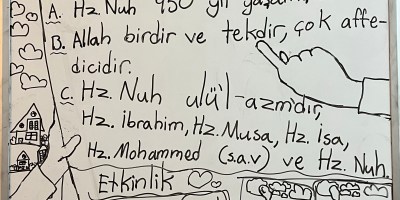 A. Hz. Nuh 950 yıl yaşamış
B. Allah birdir ve tekdir, çok affe-
dicidir.
C. Hz. Nuh ulü'l-azmdır,
Hz. İbrahim, Hz. Musa, Hz. İsa,
Hz. Mohammed (s.a.v) ve Hz. Nuh.
Etkinlik